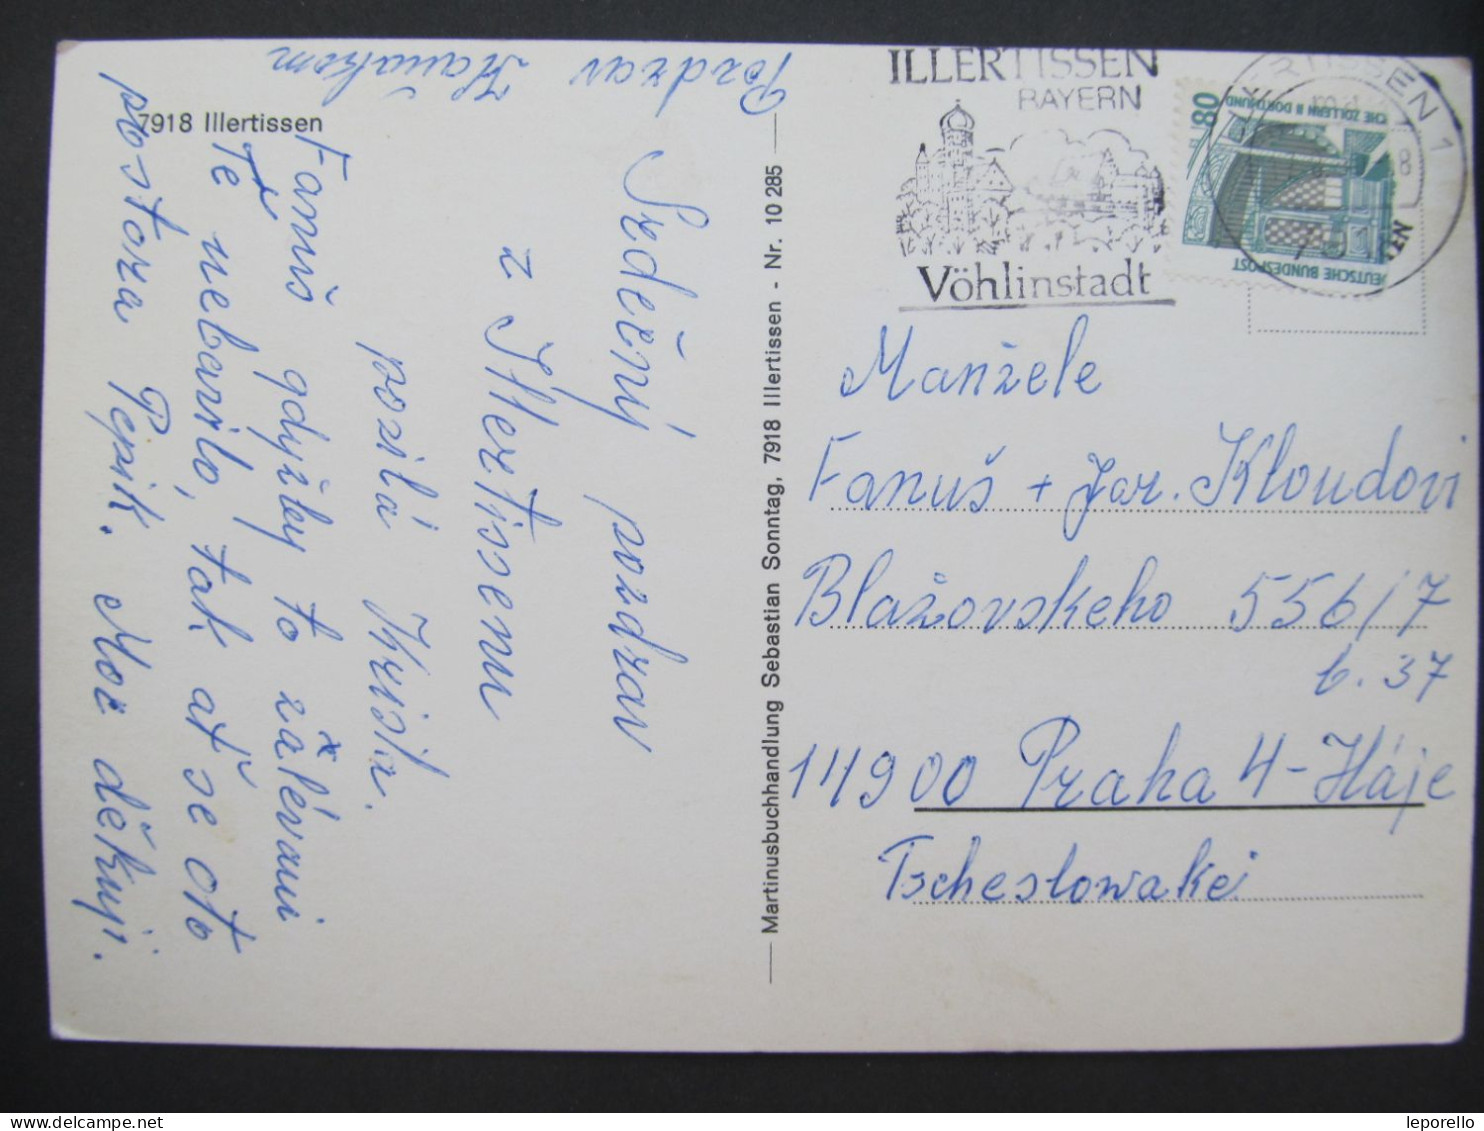 7918 Illertissen
Pozdrav
Srdečný pozdrav
z Illertissenu
posílá Krista.
Fanuš gdyžby to zalévani
Tě nebavilo, tak ať se oto
postoza Pepik. Moc děkuji.
Martinusbuchhandlung Sebastian Sonntag, 7918 Illertissen - Nr. 10 285
ILLERTISSEN
BAYERN
Vöhlinstadt
80
ZOLLERN II DORTMUND
DEUTSCHE BUNDESPOST
ILLERTISSEN 1
Manžele
Fanuš + Jar. Kloudovi
Blažovskeho 556/7
b. 37
14900 Praha 4-Háje
Tscheslowakei
leporello